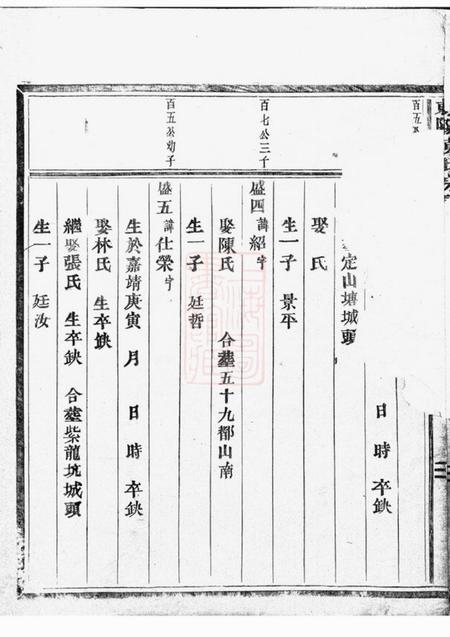 百五
日 時 卒缺
定山塘城頭
娶 氏
生一子 景平
百七公三子
盛四 諱紹 字
娶陳氏 合葬五十九都山南
生一子 廷哲
百五公幼子
盛五 諱仕榮 字
生於嘉靖庚寅 月 日 時 卒缺
娶林氏 生卒缺
繼娶張氏 生卒缺 合葬紫龍坑城頭
生一子 廷汝